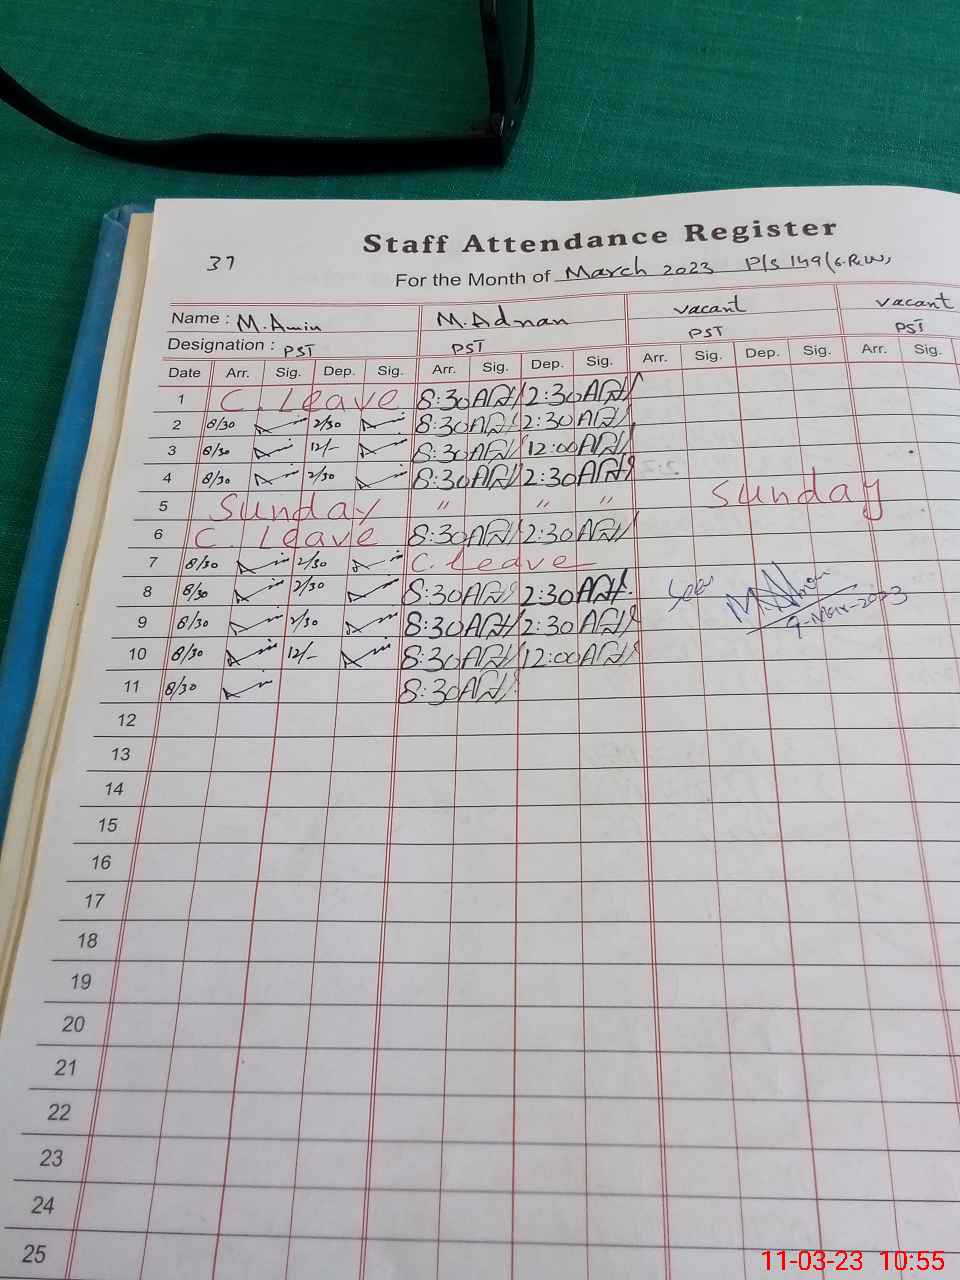 Staff Attendance Register
37
For the Month of March 2023 P/S 149/6.R.W,
Name : M.Amin M.Adnan vacant vacant
Designation : PST PST PST PST
Date Arr. Sig. Dep. Sig. Arr. Sig. Dep. Sig. Arr. Sig. Dep. Sig. Arr. Sig.
1 C. Leave 8:30 2:30
2 8/30 2/30 8:30 2:30
3 8/30 12/- 8:30 12:00
4 8/30 2/30 8:30 2:30
5 Sunday " " " Sunday
6 C. Leave 8:30 2:30
7 8/30 2/30 C. Leave
8 8/30 2/30 8:30 2:30 See
9 8/30 2/30 8:30 2:30 9-Mar-2023
10 8/30 12/- 8:30 12:00
11 8/30 8:30
12
13
14
15
16
17
18
19
20
21
22
23
24
25
11-03-23 10:55